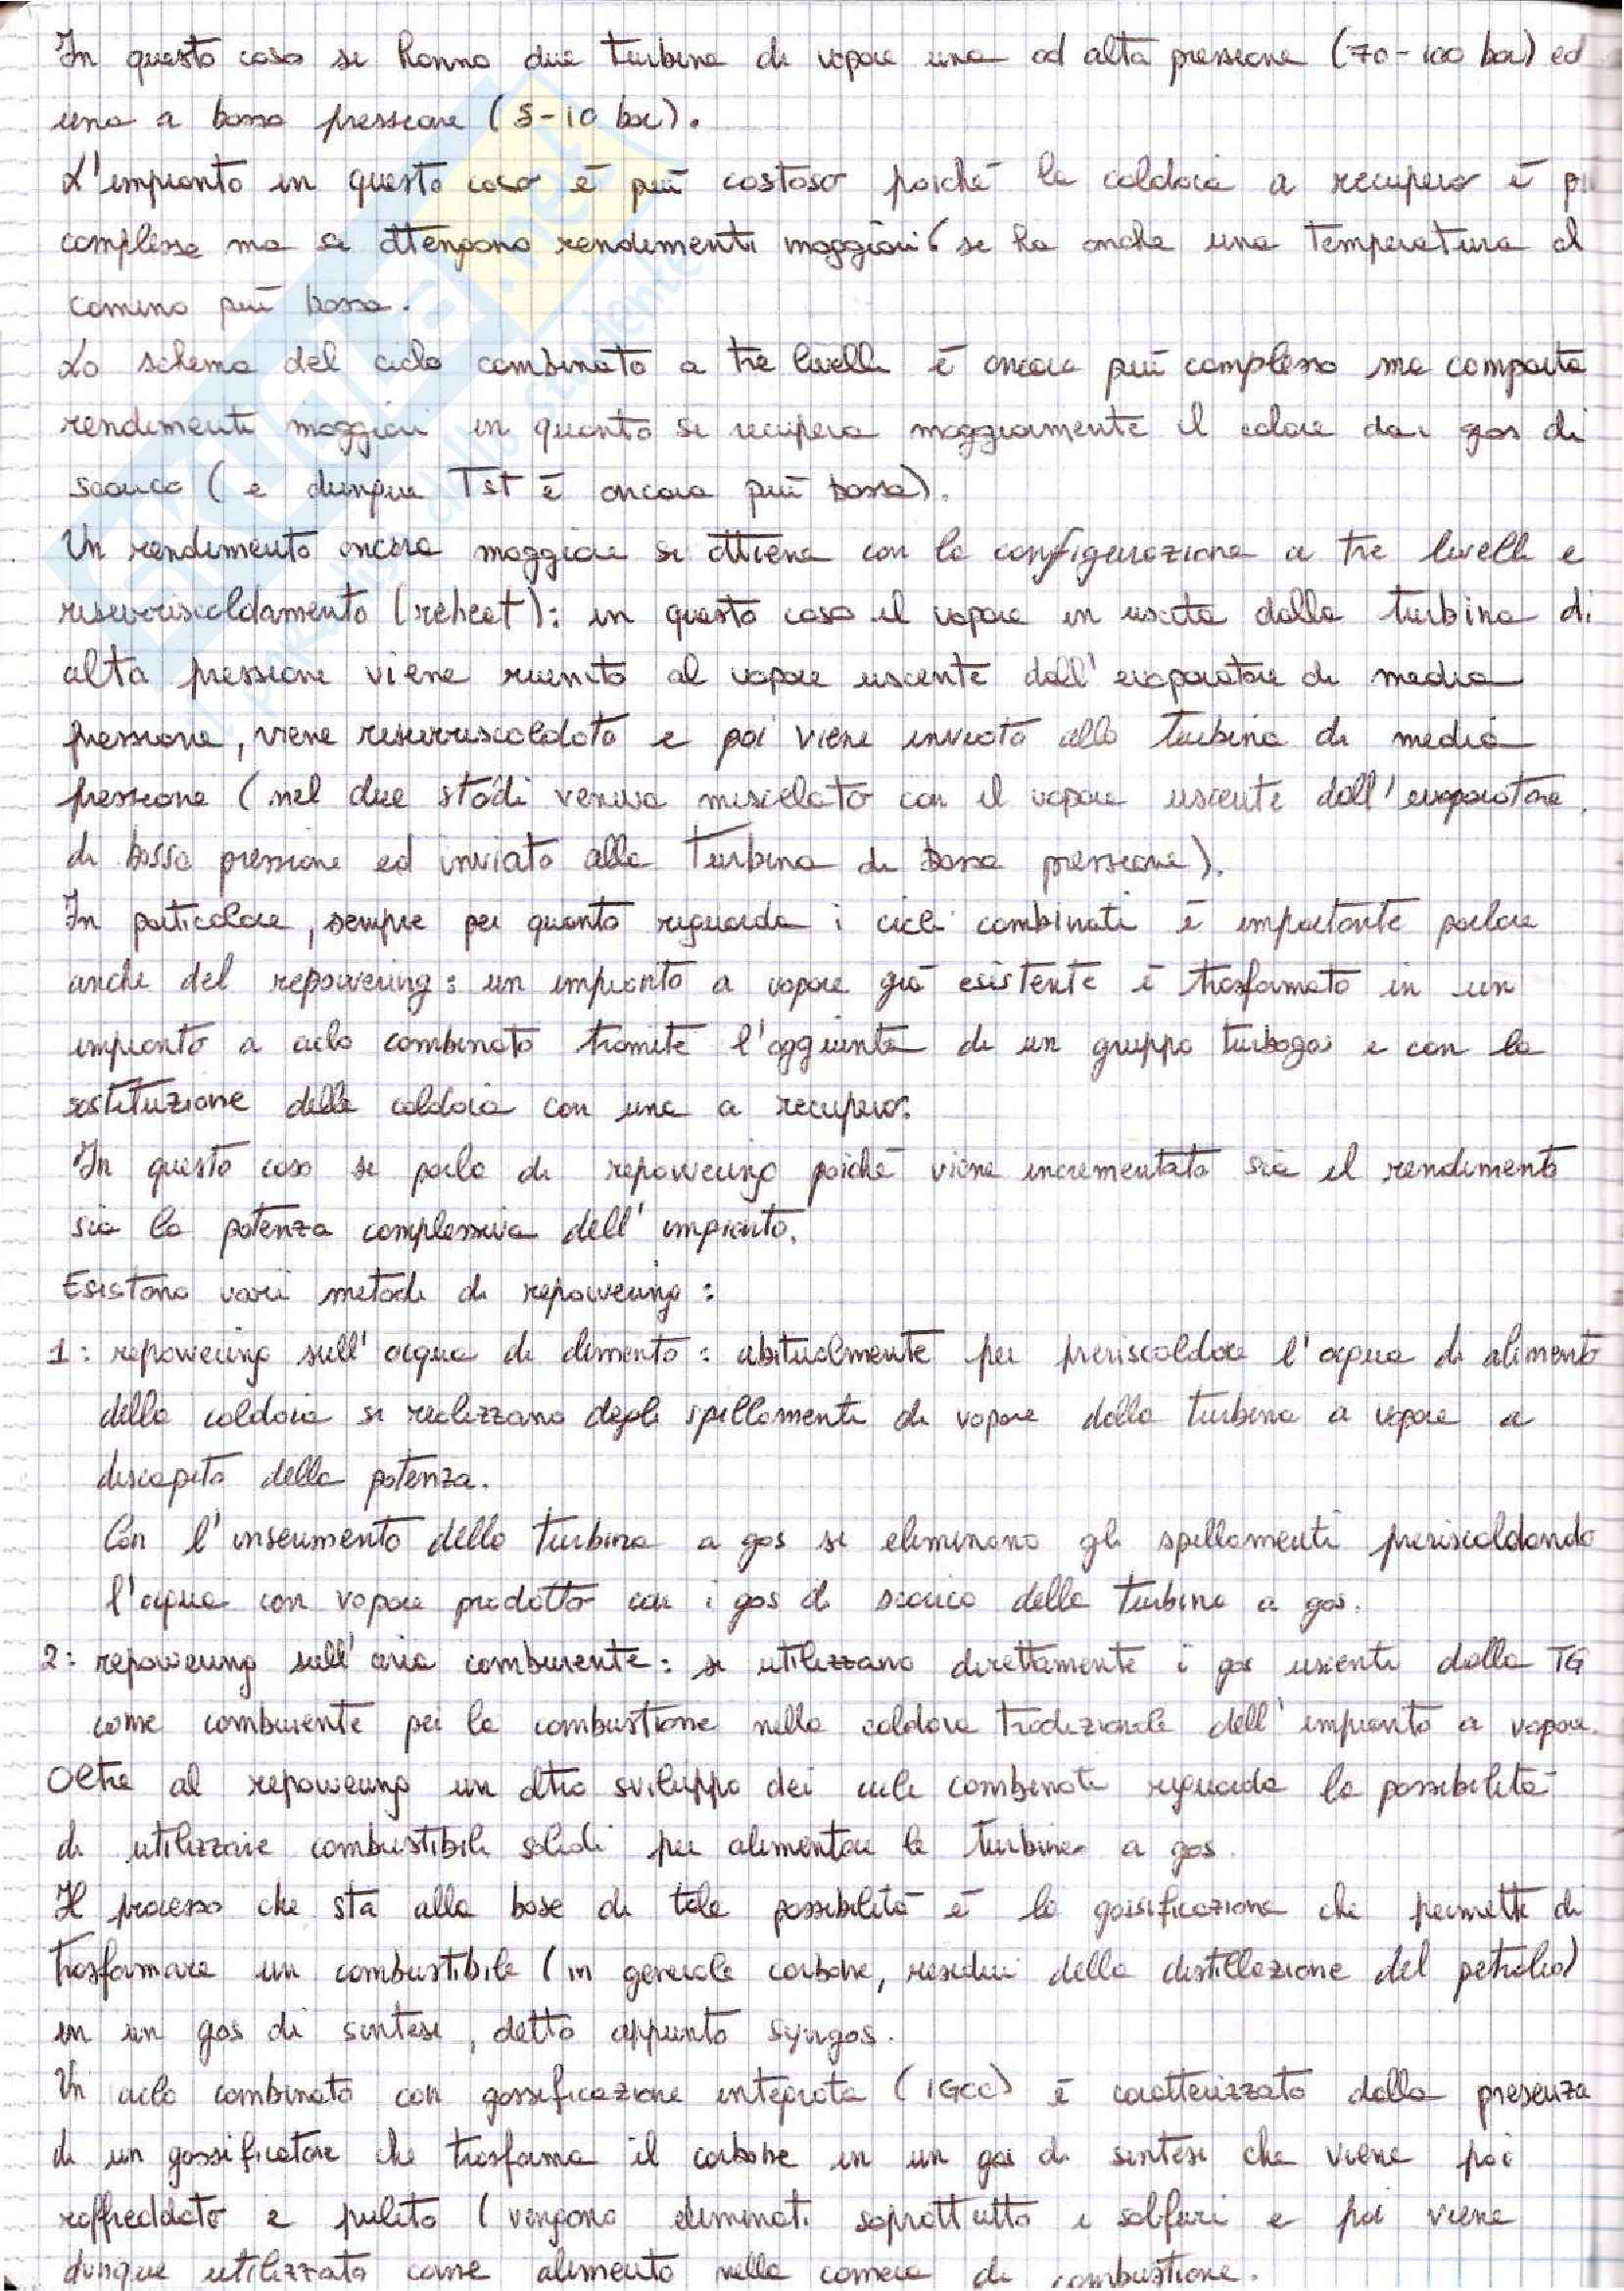 In questo caso si hanno due turbine di vapore una ad alta pressione (70-100 bar) ed
una a bassa pressione (5-10 bar).
L'impianto in questo caso è più costoso poiché la caldaia a recupero è
complessa ma si ottengono rendimenti maggiori (si ha anche una temperatura al
camino più bassa.
Lo schema del ciclo combinato a tre livelli è ancora più complesso ma comporta
rendimenti maggiori in quanto si recupera maggiormente il calore dai gas di
scarico (e dunque Tst è ancora più bassa).
Un rendimento ancora maggiore si ottiene con la configurazione a tre livelli e
risurriscaldamento (reheat): in questo caso il vapore in uscita dalla turbina di
alta pressione viene riunito al vapore uscente dall'evaporatore di media
pressione, viene risurriscaldato e poi viene inviato alla turbina di media
pressione (nel due stadi veniva miscelato con il vapore uscente dall'evaporatore
di bassa pressione ed inviato alla turbina di bassa pressione).
In particolare, sempre per quanto riguarda i cicli combinati è importante parlare
anche del repowering: un impianto a vapore già esistente è trasformato in un
impianto a ciclo combinato tramite l'aggiunta di un gruppo turbogas e con la
sostituzione della caldaia con una a recupero.
In questo caso si parla di repowering poiché viene incrementato sia il rendimento
sia la potenza complessiva dell'impianto.
Esistono vari metodi di repowering:
1: repowering sull'acqua di alimento: abitualmente per preriscaldare l'acqua di alimento
della caldaia si realizzano degli spillamenti di vapore dalla turbina a vapore a
discapito della potenza.
Con l'inserimento della turbina a gas si eliminano gli spillamenti preriscaldando
l'acqua con vapore prodotto con i gas di scarico della turbina a gas.
2: repowering sull'aria comburente: si utilizzano direttamente i gas uscenti dalla TG
come comburente per la combustione nella caldaia tradizionale dell'impianto a vapore.
Oltre al repowering un altro sviluppo dei cicli combinati riguarda la possibilità
di utilizzare combustibili solidi per alimentare le turbine a gas.
Il processo che sta alla base di tale possibilità è la gassificazione che permette di
trasformare un combustibile (in generale carbone, residui della distillazione del petrolio)
in un gas di sintesi, detto appunto syngas.
Un ciclo combinato con gassificazione integrata (IGCC) è caratterizzato dalla presenza
di un gassificatore che trasforma il carbone in un gas di sintesi che viene poi
raffreddato e pulito (vengono eliminati soprattutto i solfuri e poi viene
dunque utilizzato come alimento nella camera di combustione.